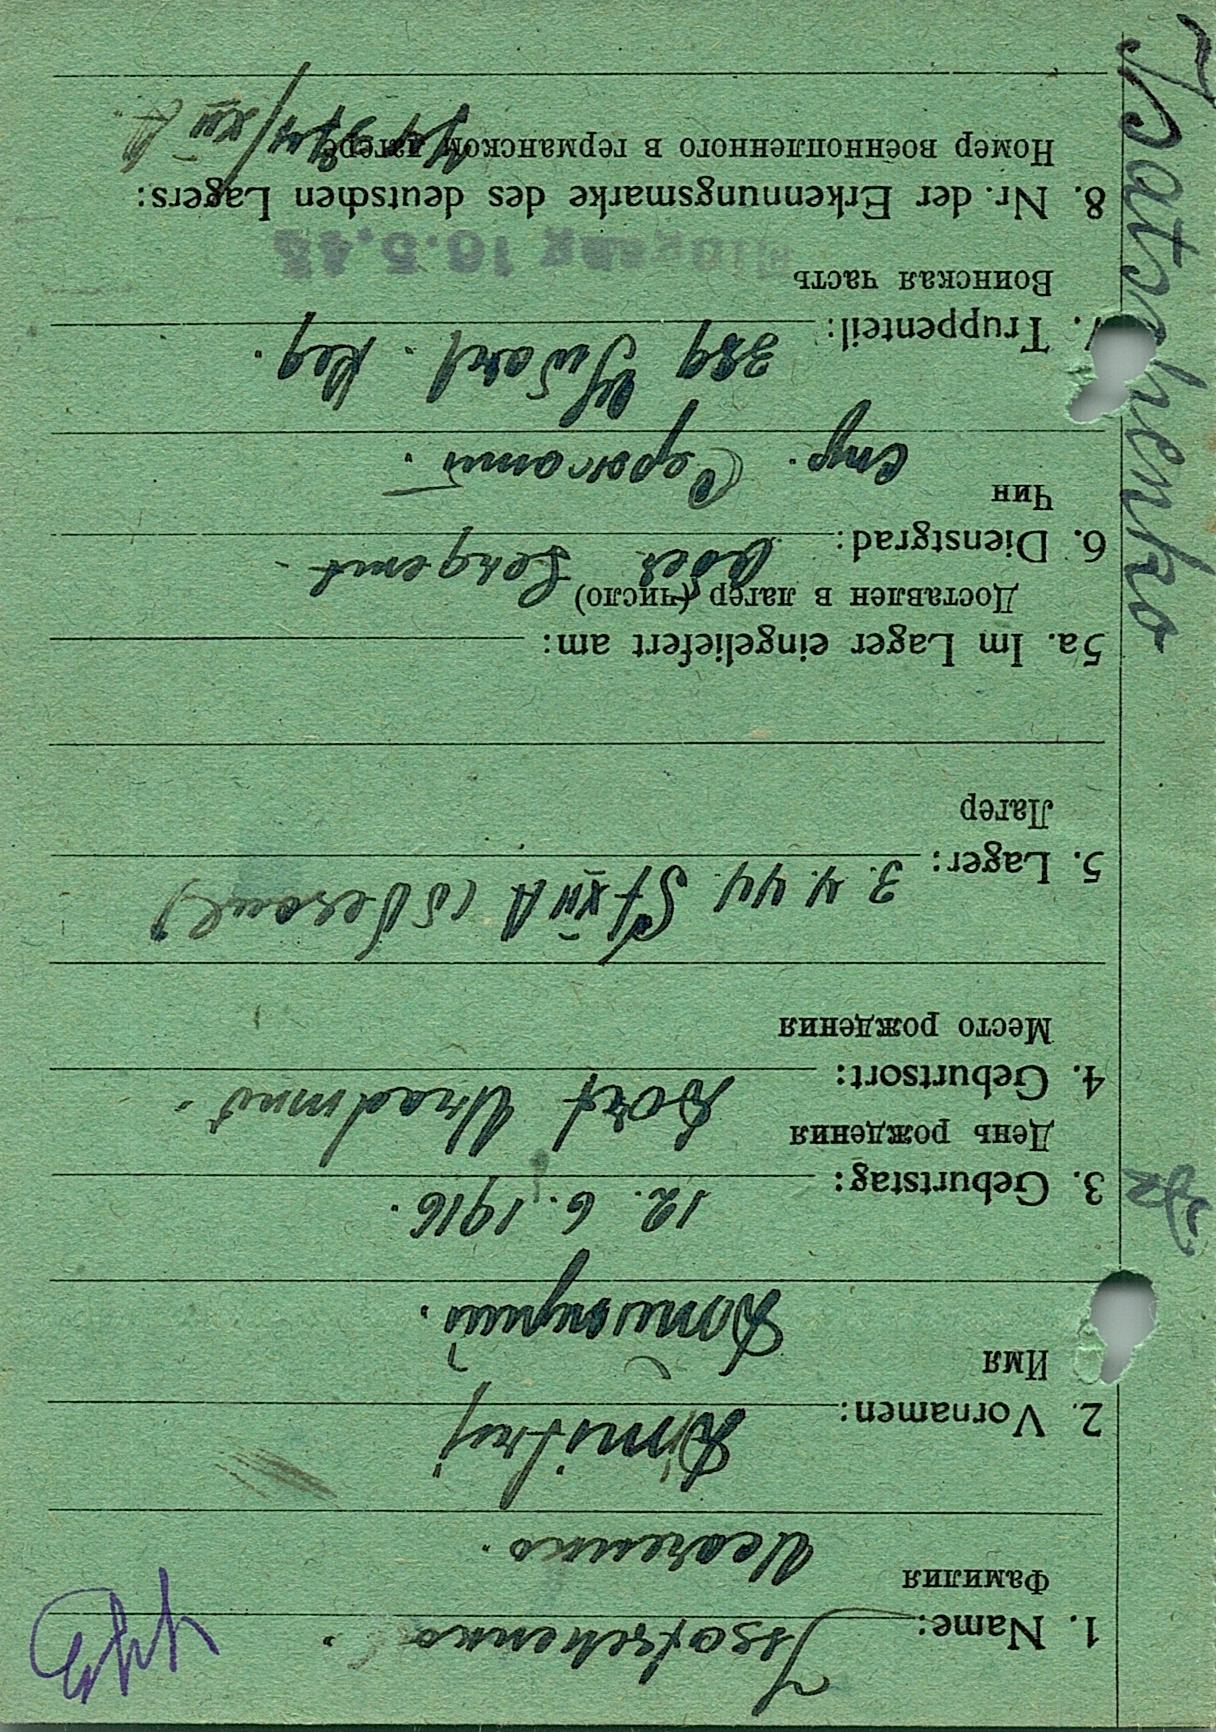 Isatschenko
1. Name: Issatschenko.
Фамилия Исаченко.
2. Vornamen: Dimitrij
Имя Дмитрий.
3. Geburtstag: 12. 6. 1916.
День рождения
4. Geburtsort: Dorf
Место рождения
5. Lager: 3. 4. 44 St XIII A (
Лагер
5a. Im Lager eingeliefert am:
Доставлен в лагер (число)
6. Dienstgrad: Ober Sergent.
Чин Стр. Сержант.
7. Truppenteil: 389 Reg.
Воинская часть
Eingang 16.5.45
8. Nr. der Erkennungsmarke des deutschen Lagers:
Номер военнопленного в германском лагере /XIII A.